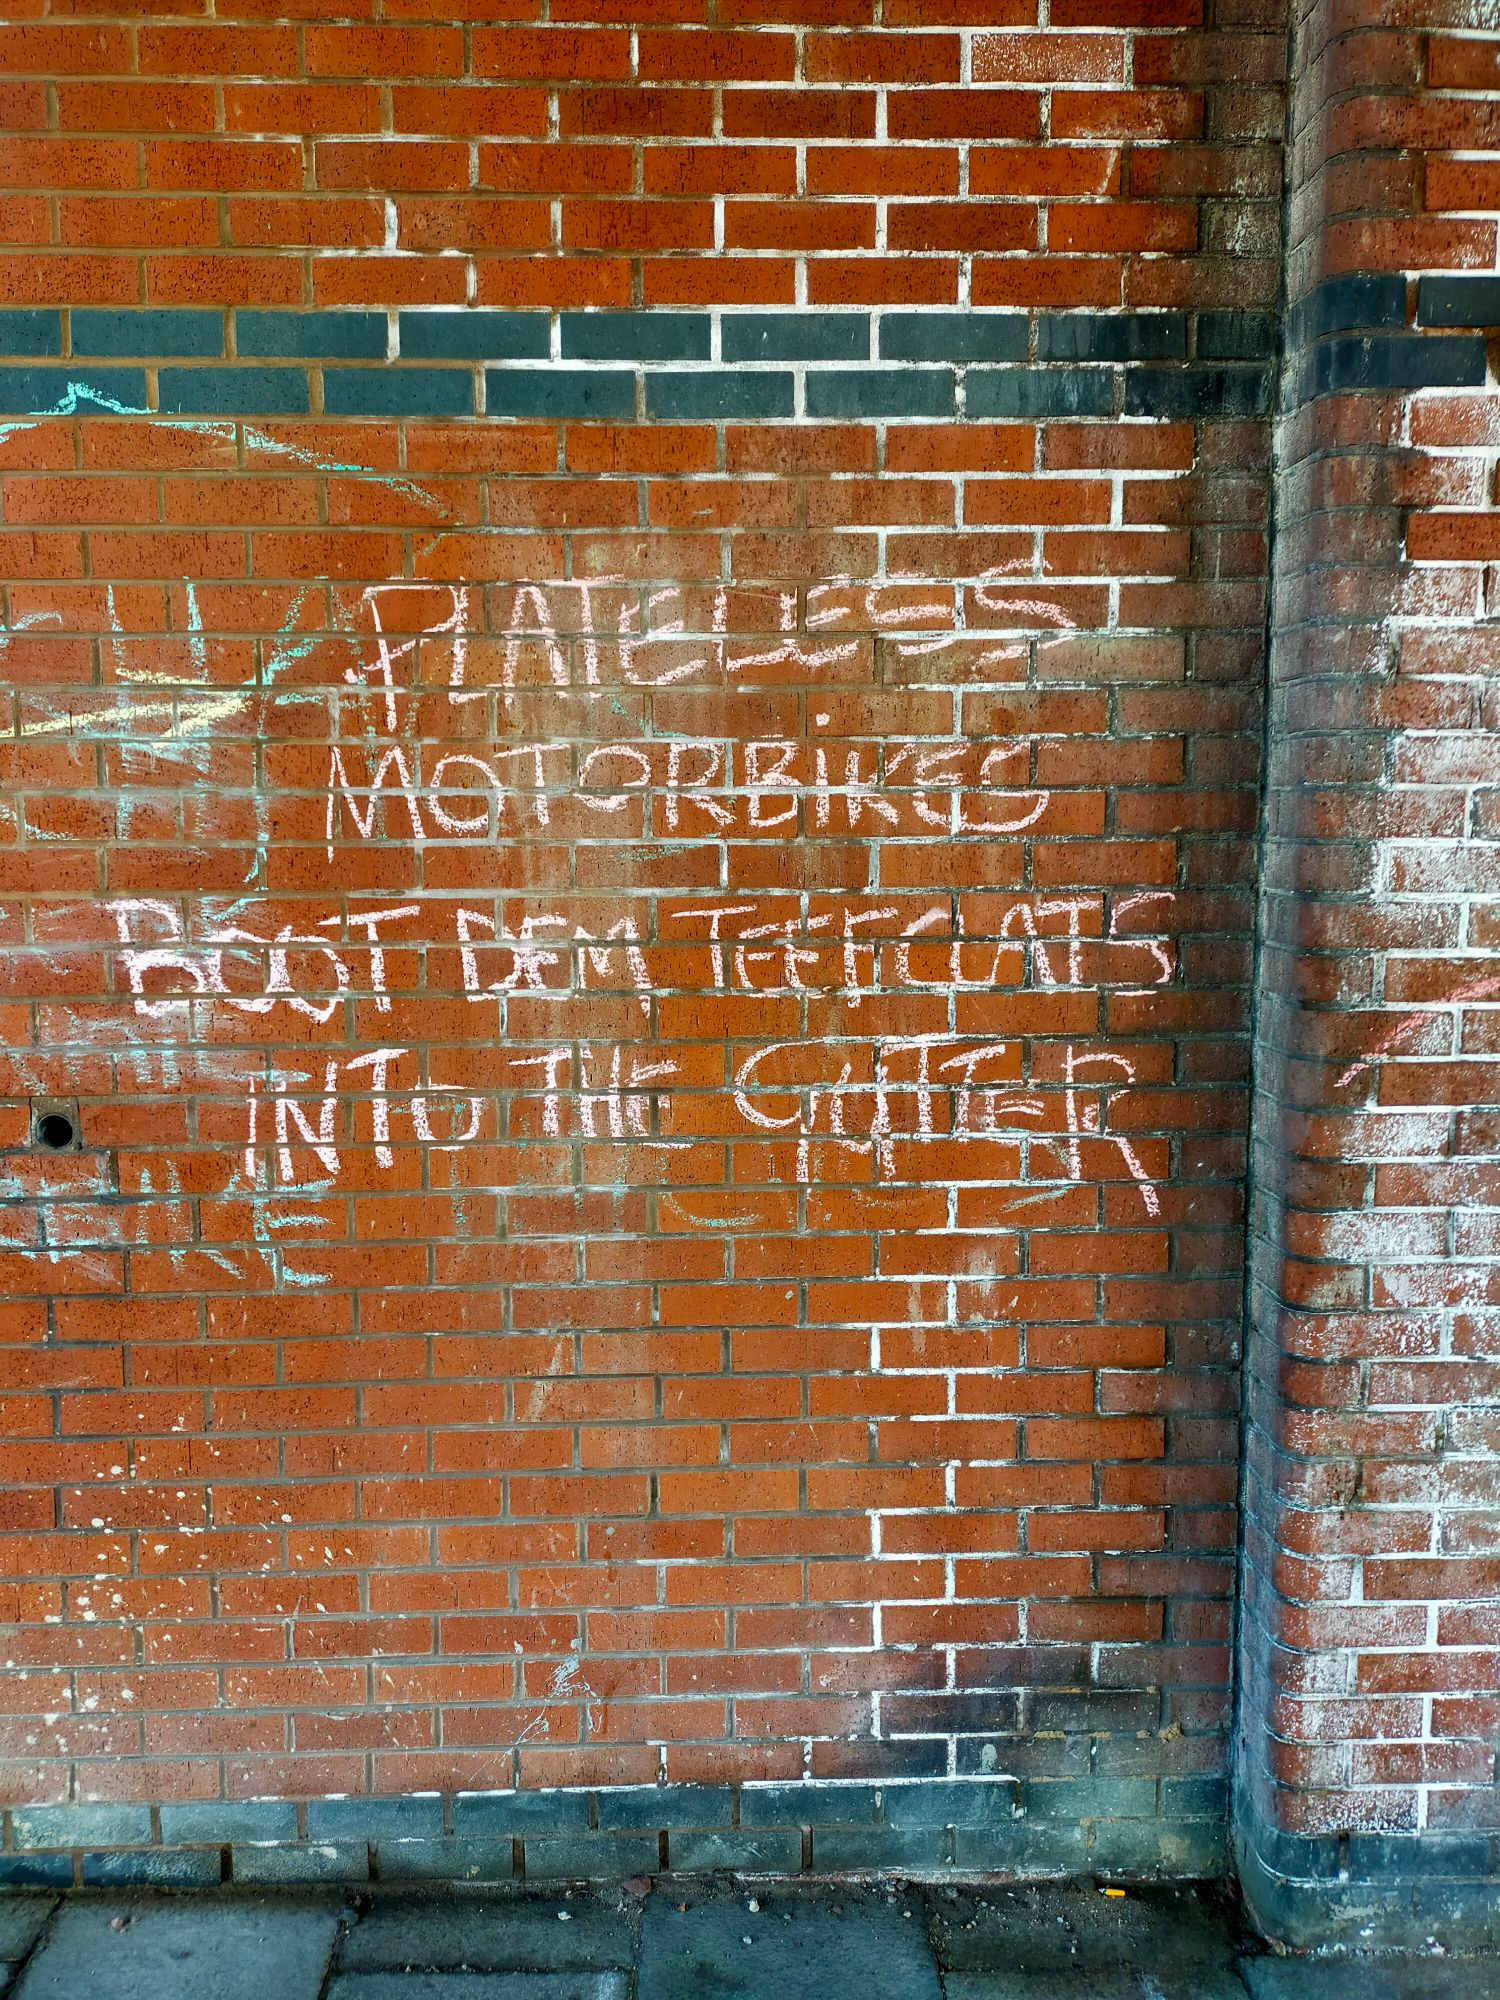 PLATELESS
MOTORBiKES
BOOT DEM TEEFCUATS
INTO THE GUTTER